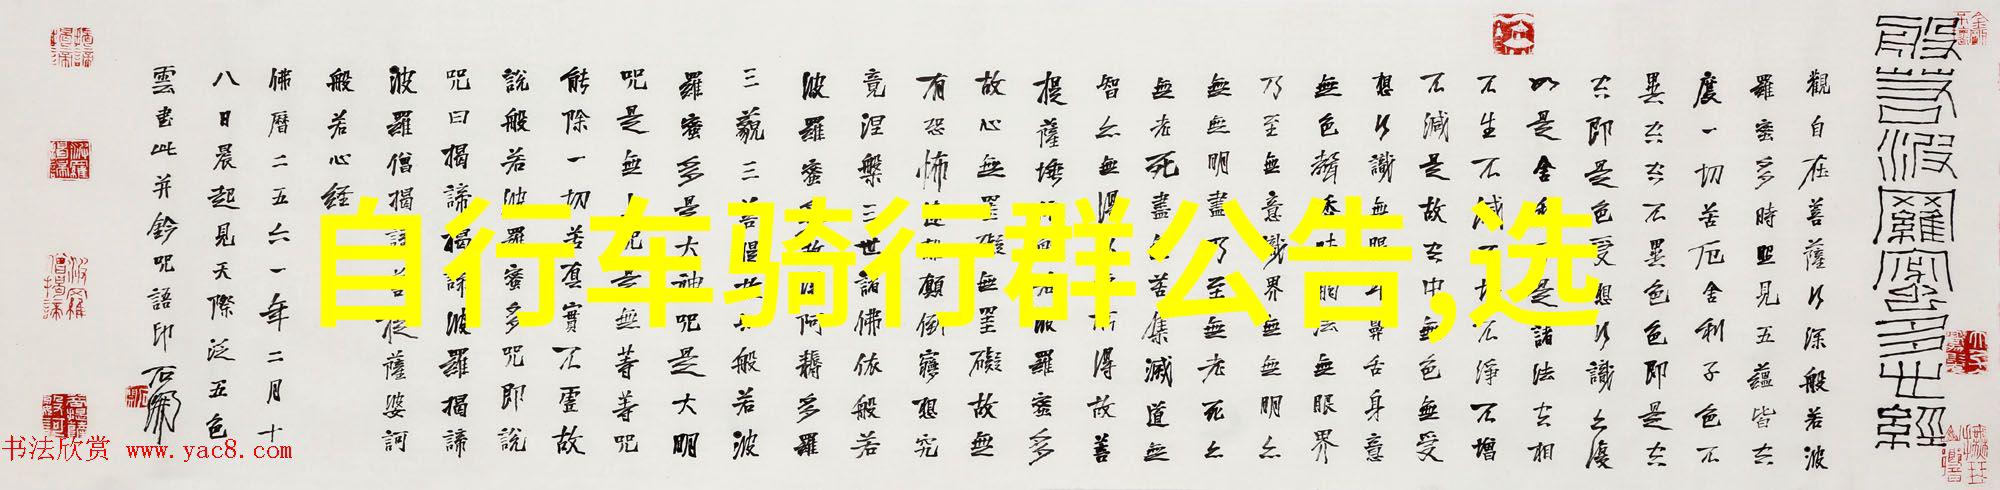 般若波羅蜜多心經
觀自在菩薩行深般若波
羅蜜多時照見五蘊皆空
度一切苦厄舍利子色不
異空空不異色色即是空
空即是色受想行識亦復
如是舍利子是諸法空相
不生不滅不垢不淨不增
不減是故空中無色無受
想行識無眼耳鼻舌身意
無色聲香味觸法無眼界
乃至無意識界無無明亦
無無明盡乃至無老死亦
無老死盡無苦集滅道無
智亦無得以無所得故菩
提薩埵依般若波羅蜜多
故心無罣礙無罣礙故無
有恐怖遠離顛倒夢想究
竟涅槃三世諸佛依般若
波羅蜜多故得阿耨多羅
三藐三菩提故知般若波
羅蜜多是大神咒是大明
咒是無上咒是無等等咒
能除一切苦真實不虛故
說般若波羅蜜多咒即說
咒曰揭諦揭諦波羅揭諦
波羅僧揭諦菩提薩婆訶
般若心経
佛曆二五六一年二月十
八日晨起見天際泛五色
雲書此并鈐咒語印
自行车骑行群公告,选
书法欣赏 www.yac8.com